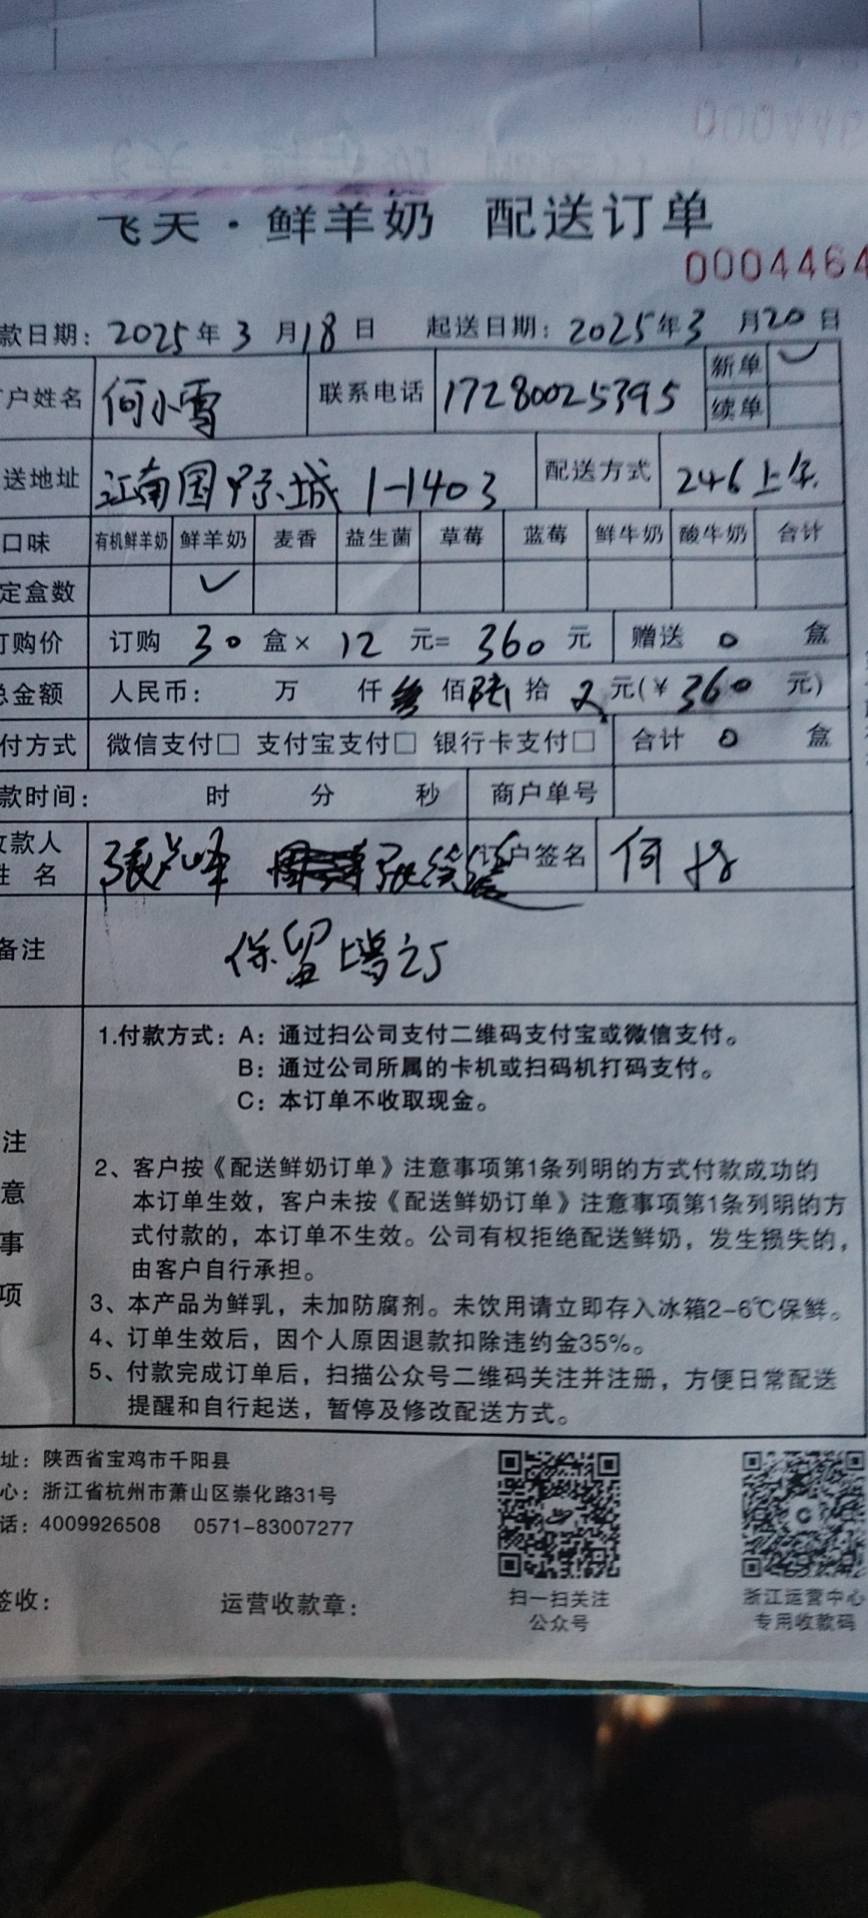 飞天·鲜羊奶 配送订单
0004464
款日期：2025年3月18日 起送日期：2025年3月20日
户姓名 何小雪 联系电话 17280025395 新单 ✓
续单
送地址 江南国际城 1-1403 配送方式 246上午
口味 有机鲜羊奶 鲜羊奶 麦香 益生菌 草莓 蓝莓 鲜牛奶 酸牛奶 合计
定盒数 ✓
订购价 订购 30 盒× 12 元= 360 元 赠送 0 盒
总金额 人民币： 万 仟 叁 佰 陆 拾 元(￥360 元)
付方式 微信支付□ 支付宝支付□ 银行卡支付□ 合计 0 盒
款时间： 时 分 秒 商户单号
收款人 订户签名 何
姓 名
备注 保留
1.付款方式：A：通过扫公司支付二维码支付宝或微信支付。
B：通过公司所属的卡机或扫码机打码支付。
C：本订单不收取现金。
注意事项
2、客户按《配送鲜奶订单》注意事项第1条列明的方式付款成功的
本订单生效，客户未按《配送鲜奶订单》注意事项第1条列明的方
式付款的，本订单不生效。公司有权拒绝配送鲜奶，发生损失的，
由客户自行承担。
3、本产品为鲜乳，未加防腐剂。未饮用请立即存入冰箱2-6℃保鲜。
4、订单生效后，因个人原因退款扣除违约金35%。
5、付款完成订单后，扫描公众号二维码关注并注册，方便日常配送
提醒和自行起送，暂停及修改配送方式。
址：陕西省宝鸡市千阳县
心：浙江省杭州市萧山区崇化路31号
话：4009926508 0571-83007277
签收： 运营收款章：
扫一扫关注
公众号
浙江运营中心
专用收款码